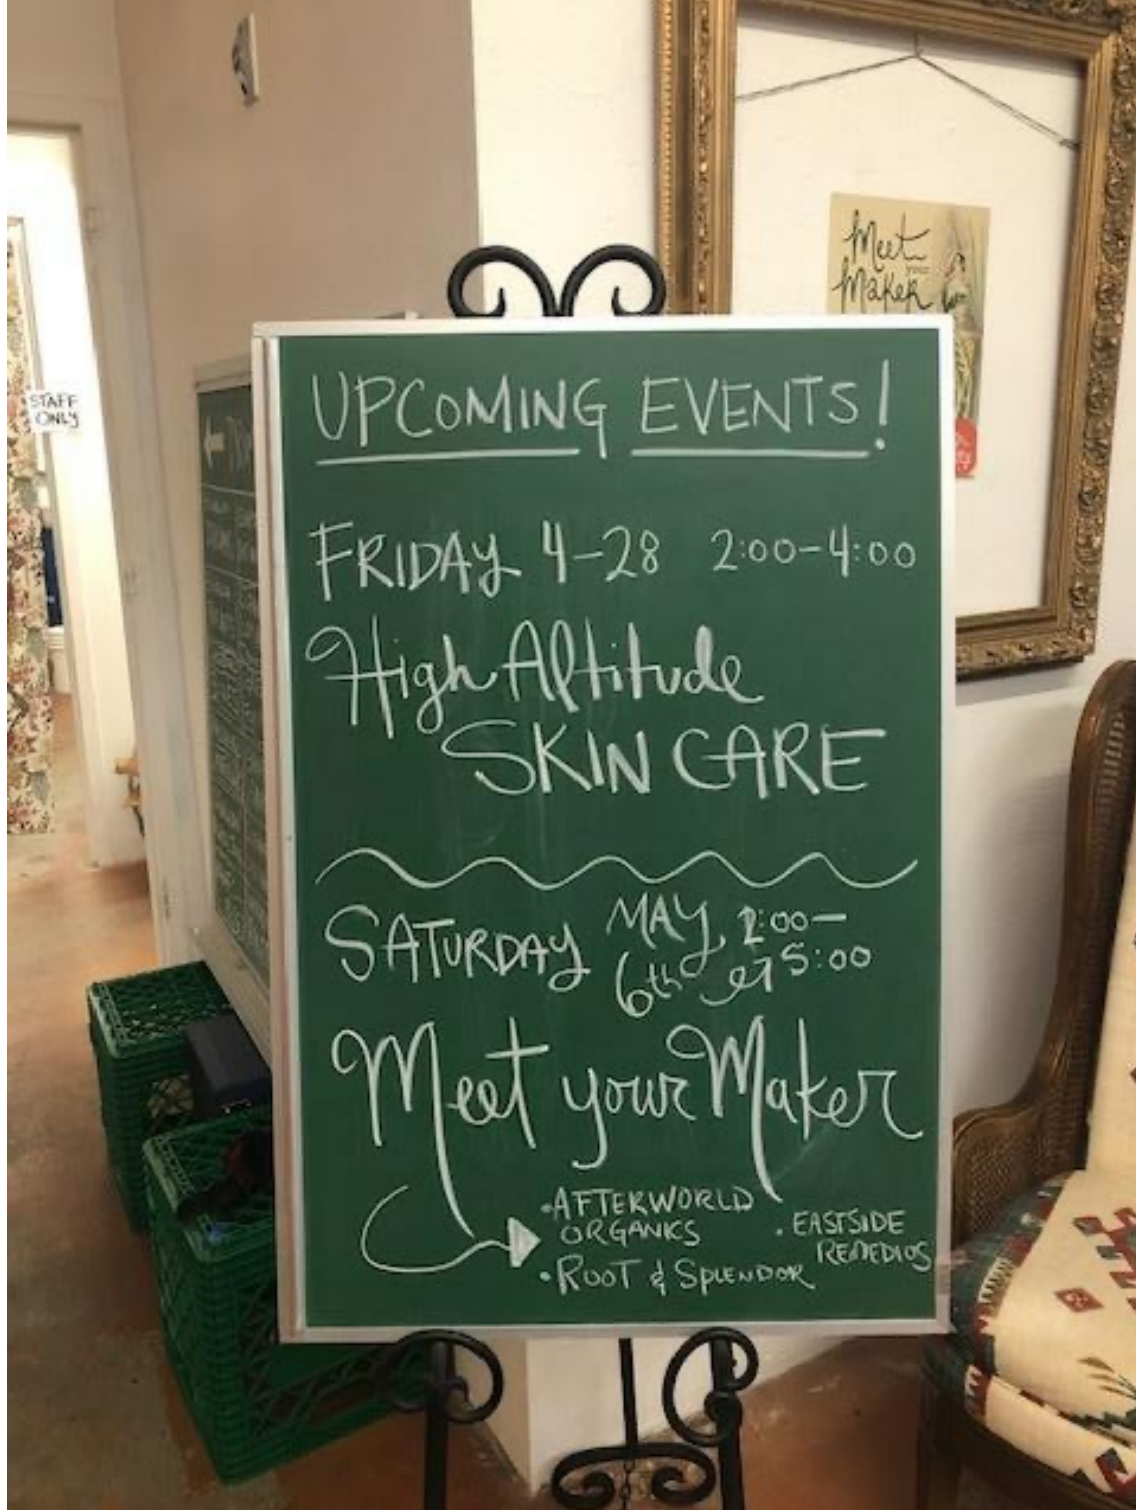 STAFF
ONLY
Meet
your
Maker
UPCOMING EVENTS!
FRIDAY 4-28 2:00-4:00
High Altitude
SKIN CARE
SATURDAY MAY 6th 2:00-
5:00
Meet your Maker
• AFTERWORLD
ORGANKS
• EASTSIDE
REMEDIOS
• ROOT & SPLENDOR